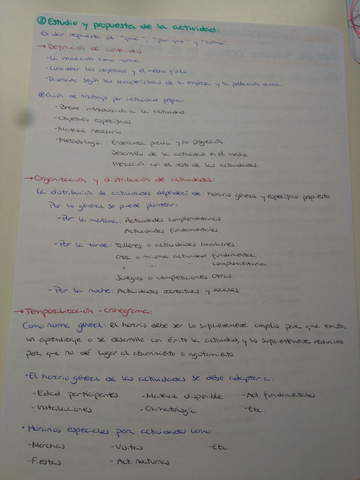 ② Estudio y propuesta de la actividad:
Es dar respuesta al "qué", "por qué" y "cómo".
→ Definición de contenidos:
- La recreación como norma
- Considerar los objetivos y el medio físico
- Diseñado según las características de la empresa y la población diana.
Guía de trabajo por actividad propia:
- Breve introducción a la actividad
- Objetivos específicos
- Material necesario
- Metodología: Enseñanza previa y su progresión
Desarrollo de la actividad en el medio
Interacción con el resto de las actividades.
→ Organización y distribución de actividades:
La distribución de actividades dependerá del horario general y específico propuesto
Por lo general se puede plantear:
- Por la mañana: Actividades complementarias
Actividades fundamentales
- Por la tarde: Talleres o actividades
Otra o misma actividad fundamental
" " " complementaria
Juegos o competiciones
- Por la noche: Actividades recreativas y sociales
→ Temporalización - cronograma:
Como norma general: el horario debe ser lo suficientemente amplio para que exista
un aprendizaje o se desarrolle con éxito la actividad, y lo suficientemente reducido
para que no dé lugar al aburrimiento o agotamiento.
• El horario general de las actividades se debe adaptar a:
- Edad participantes - Material disponible - Act. fundamentales
- Instalaciones - Climatología - Etc.
• Horarios especiales para actividades como:
- Marchas - Visitas - Etc
- Fiestas - Act. nocturnas